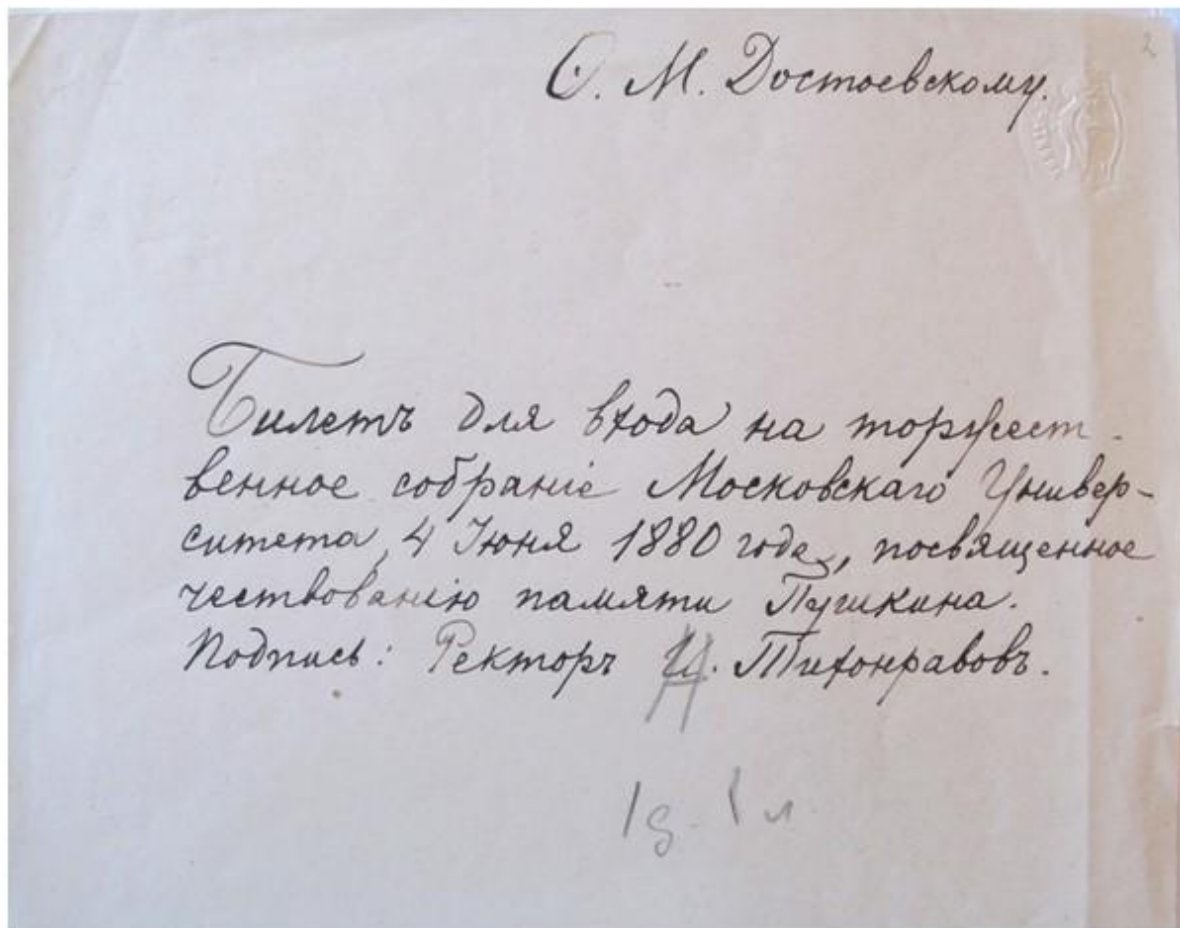 2
Ѳ. М. Достоевскому.
Билетъ для входа на торжест-
венное собраніе Московскаго Универ-
ситета, 4 Іюня 1880 года, посвященное
чествованію памяти Пушкина.
Подпись: Ректоръ Н. Тихонравовъ.